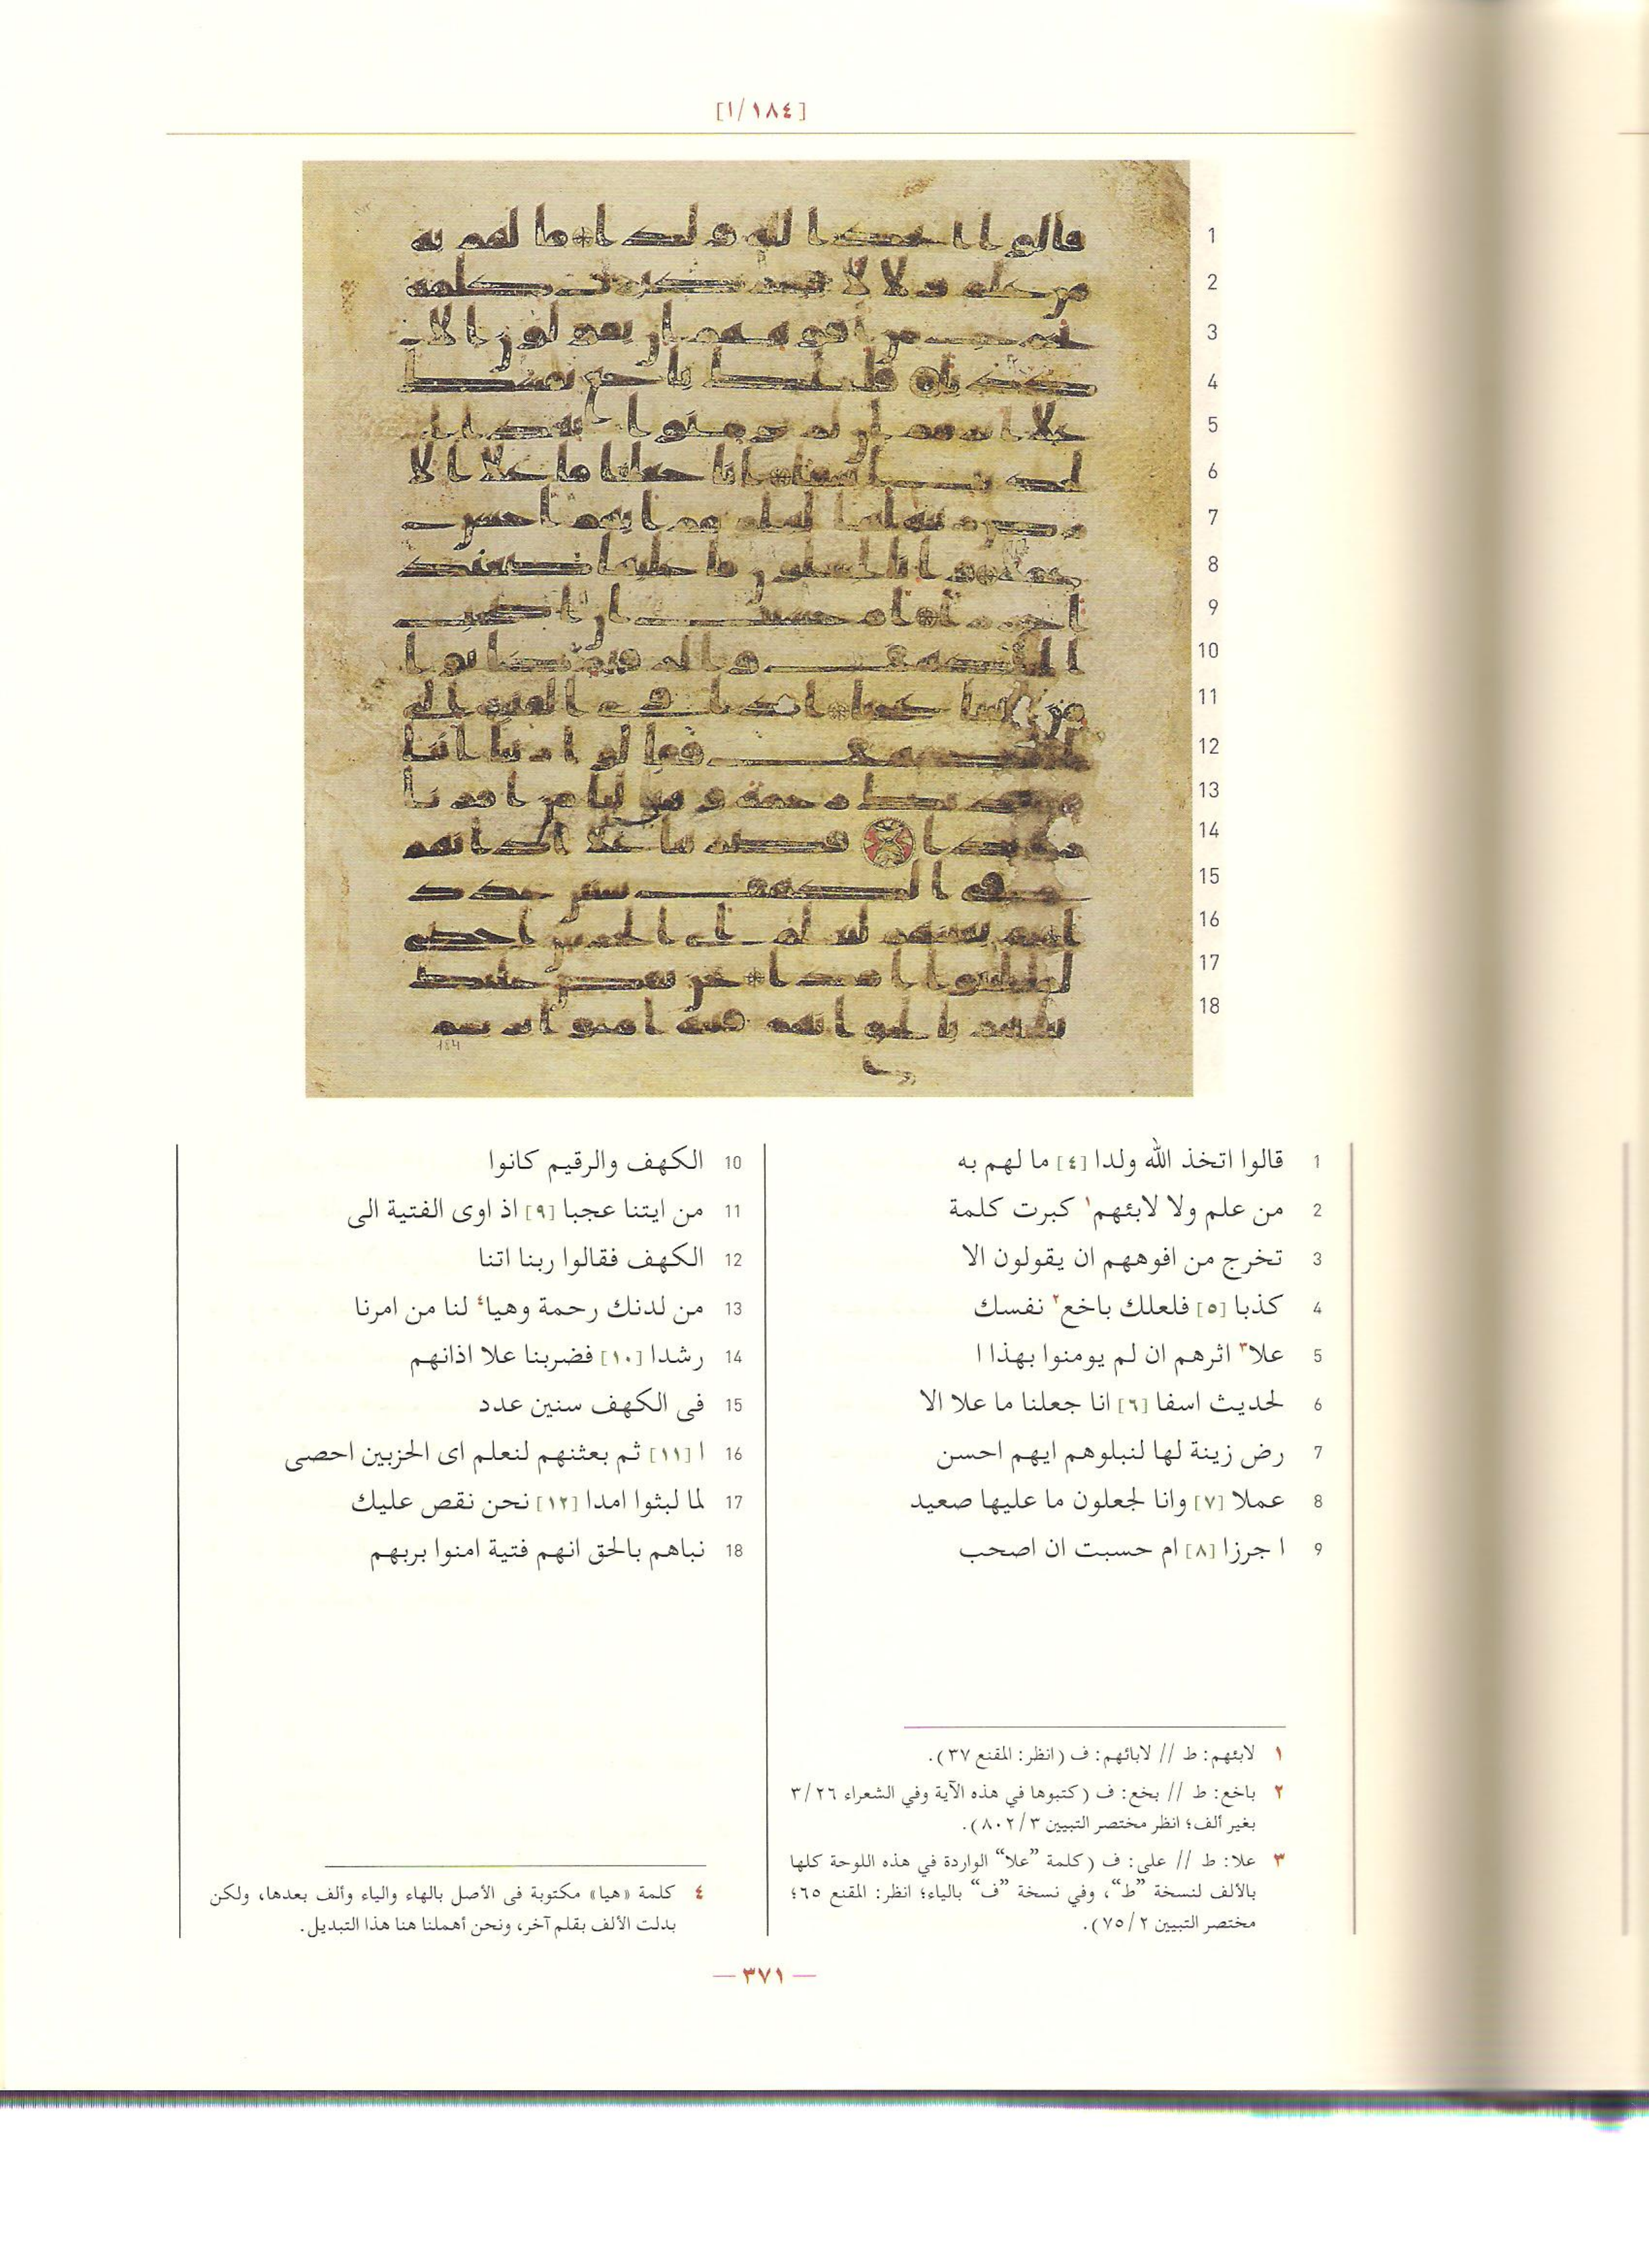 [١/١٨٤]
1 قالوا اتخذ الله ولدا [٤] ما لهم به
2 من علم ولا لابئهم١ كبرت كلمة
3 تخرج من افوههم ان يقولون الا
4 كذبا [٥] فلعلك باخع٢ نفسك
5 علا٣ اثرهم ان لم يومنوا بهذا ا
6 لحديث اسفا [٦] انا جعلنا ما علا الا
7 رض زينة لها لنبلوهم ايهم احسن
8 عملا [٧] وانا لجعلون ما عليها صعيد
9 ا جرزا [٨] ام حسبت ان اصحب
10 الكهف والرقيم كانوا
11 من ايتنا عجبا [٩] اذ اوى الفتية الى
12 الكهف فقالوا ربنا اتنا
13 من لدنك رحمة وهيا٤ لنا من امرنا
14 رشدا [١٠] فضربنا علا اذانهم
15 فى الكهف سنين عدد
16 ا [١١] ثم بعثنهم لنعلم اى الحزبين احصى
17 لما لبثوا امدا [١٢] نحن نقص عليك
18 نباهم بالحق انهم فتية امنوا بربهم
١ لابئهم: ط // لابائهم: ف (انظر: المقنع ٣٧).
٢ باخع: ط // بخع: ف (كتبوها في هذه الآية وفي الشعراء ٣/٢٦
بغير ألف؛ انظر مختصر التبيين ٨٠٢/٣).
٣ علا: ط // على: ف (كلمة ”علا“ الواردة في هذه اللوحة كلها
بالألف لنسخة ”ط“، وفي نسخة ”ف“ بالياء؛ انظر: المقنع ٦٥؛
مختصر التبيين ٧٥/٢).
٤ كلمة «هيا» مكتوبة فى الأصل بالهاء والياء وألف بعدها، ولكن
بدلت الألف بقلم آخر، ونحن أهملنا هنا هذا التبديل.
— ٣٧١ —